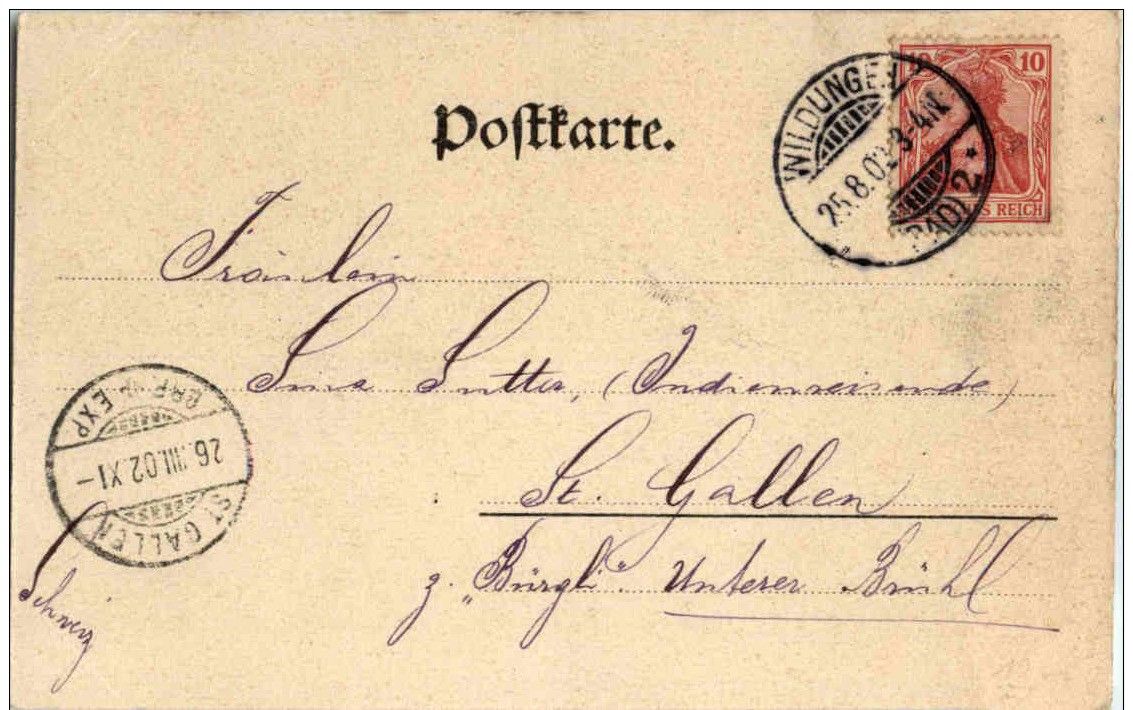 Postkarte.
10 10
WILDUNGEN
25.8.02 3-4N.
(BAD) 2 *
REICH
Fräulein
Lina Sutter, (Indienreisende)
St. Gallen
z. „Bürgli“. Unterer Brühl
Schweiz
BRF. EXP
26.VIII.02.XI-
ST. GALLEN